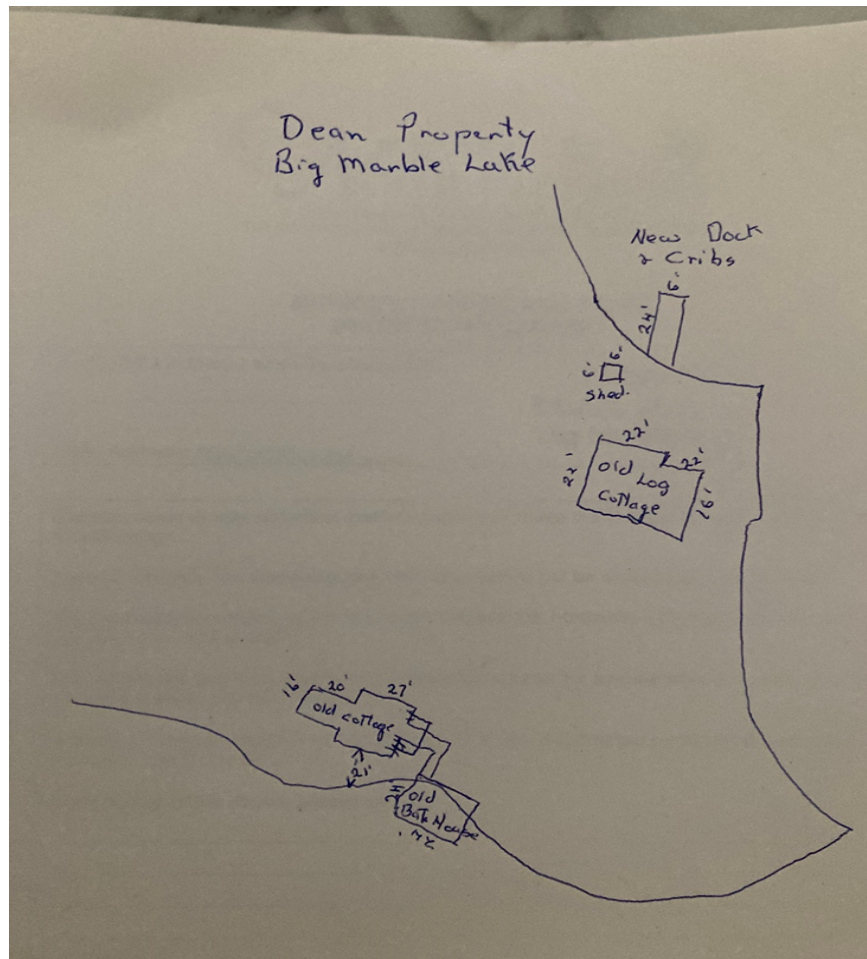 Dean Property
Big Marble Lake
New Dock
& Cribs
6'
24'
6'
6'
Shed.
22'
22'
22'
old Log
Cottage
16'
16'
20'
27'
old Cottage
21'
old